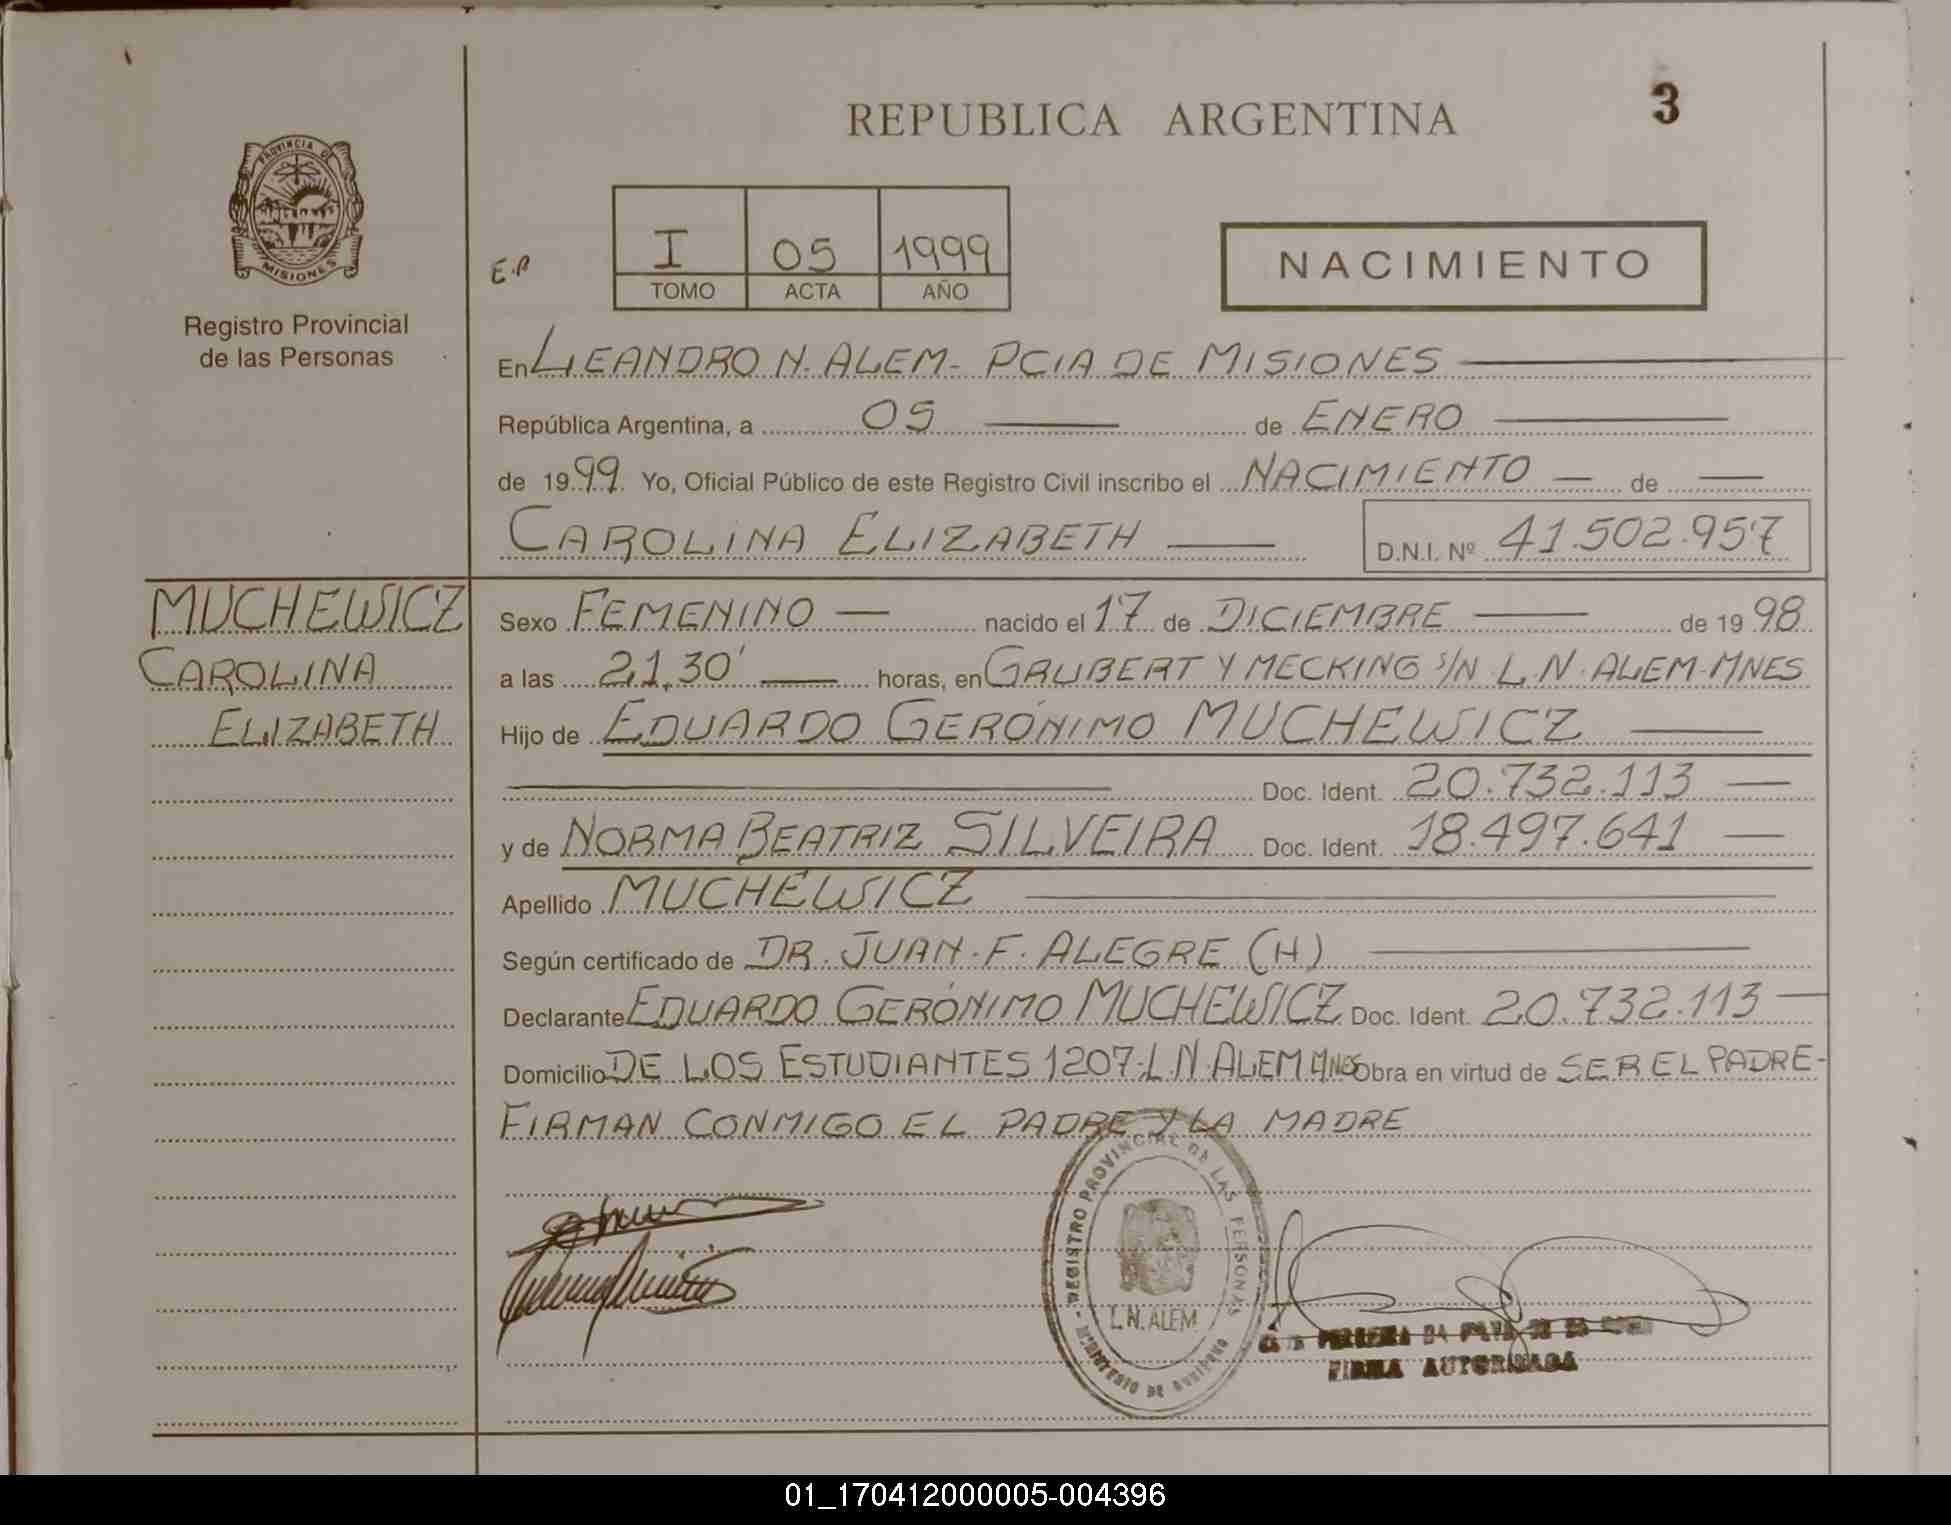 REPUBLICA ARGENTINA
3
PROVINCIA DE
MISIONES
Registro Provincial
de las Personas
E.P
I 05 1999
TOMO ACTA AÑO
NACIMIENTO
En LEANDRO N. ALEM - PCIA DE MISIONES
República Argentina, a 05 de ENERO
de 1999 Yo, Oficial Público de este Registro Civil inscribo el NACIMIENTO de
CAROLINA ELIZABETH D.N.I. Nº 41.502.957
MUCHEWICZ
CAROLINA
ELIZABETH
Sexo FEMENINO nacido el 17 de DICIEMBRE de 1998
a las 21,30' horas, en GRUBERT Y MECKING S/N L.N. ALEM-MNES
Hijo de EDUARDO GERÓNIMO MUCHEWICZ
Doc. Ident. 20.732.113
y de NORMA BEATRIZ SILVEIRA Doc. Ident. 18.497.641
Apellido MUCHEWICZ
Según certificado de DR. JUAN. F. ALEGRE (H)
Declarante EDUARDO GERÓNIMO MUCHEWICZ Doc. Ident. 20.732.113
Domicilio DE LOS ESTUDIANTES 1207-L.N.ALEM MNES Obra en virtud de SER EL PADRE-
FIRMAN CONMIGO EL PADRE Y LA MADRE
REGISTRO PROVINCIAL DE LAS PERSONAS
L.N. ALEM
MINISTERIO DE
FIRMA AUTORIZADA
01_170412000005-004396